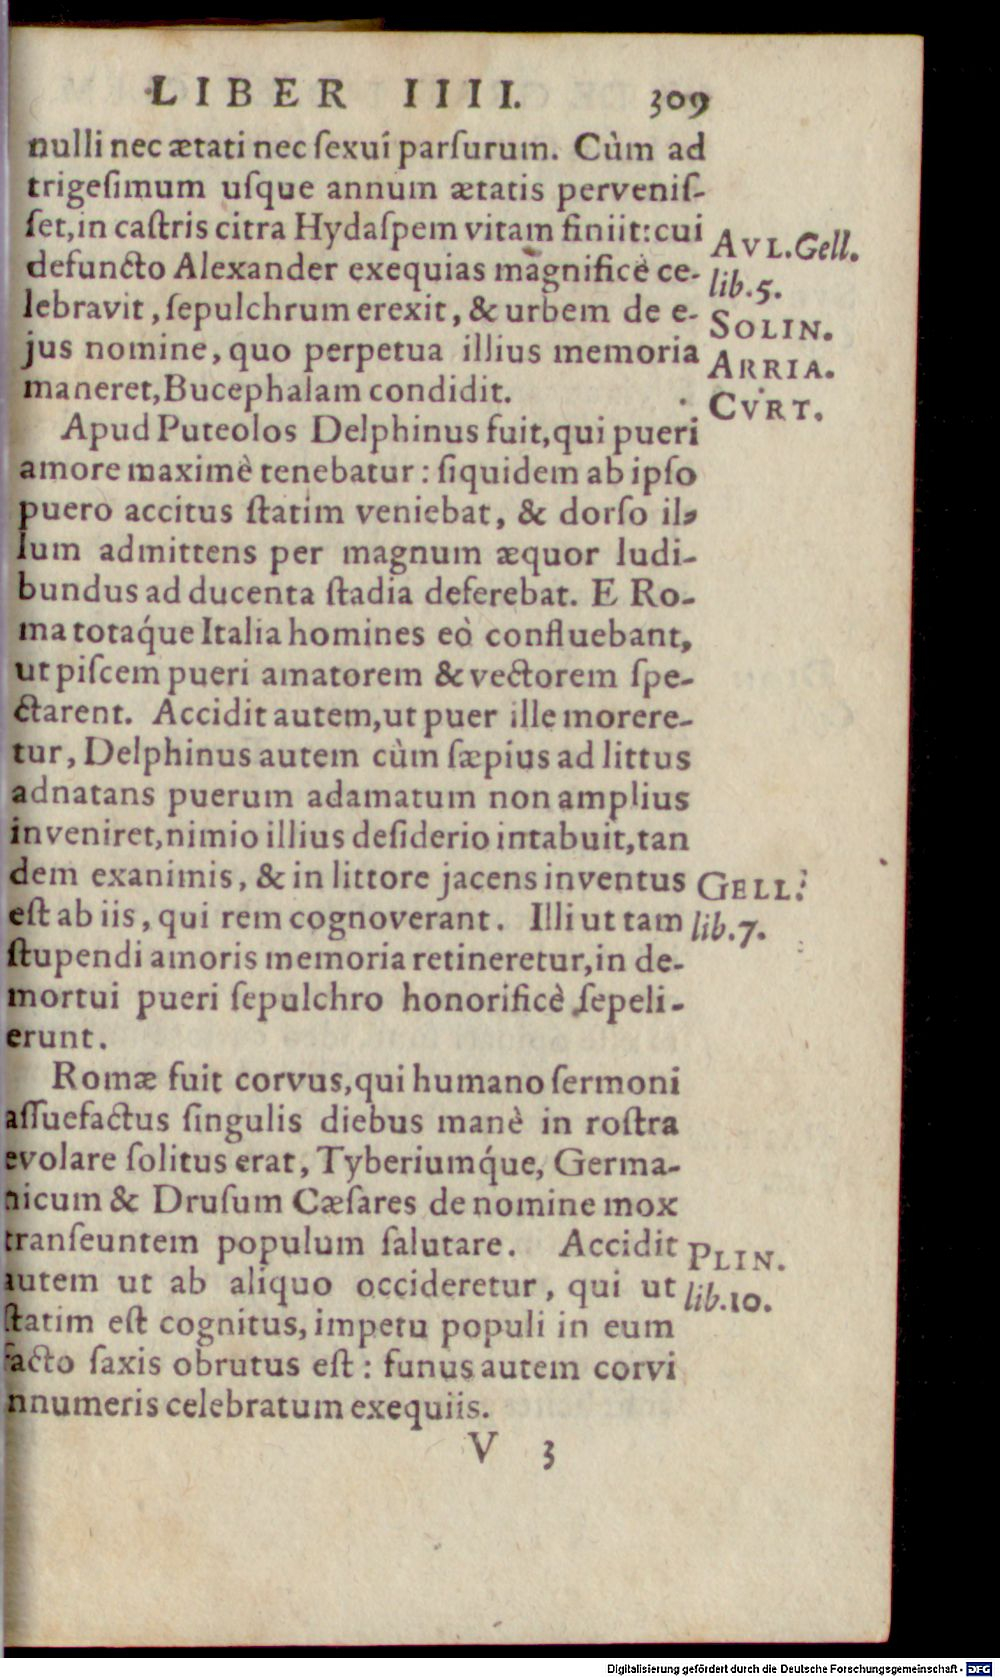 LIBER IIII. 309
nulli nec ætati nec ſexui parſurum. Cùm ad
trigeſimum uſque annum ætatis perveniſ-
ſet, in caſtris citra Hydaſpem vitam finiit: cui
AVL. Gell.
defuncto Alexander exequias magnificè ce-
lib. 5.
lebravit, ſepulchrum erexit, & urbem de e-
SOLIN.
jus nomine, quo perpetua illius memoria
ARRIA.
maneret, Bucephalam condidit.
CVRT.
Apud Puteolos Delphinus fuit, qui pueri
amore maximè tenebatur: ſiquidem ab ipſo
puero accitus ſtatim veniebat, & dorſo il-
lum admittens per magnum æquor ludi-
bundus ad ducenta ſtadia deferebat. E Ro-
ma totaq́ue Italia homines eò confluebant,
ut piſcem pueri amatorem & vectorem ſpe-
ctarent. Accidit autem, ut puer ille morere-
tur, Delphinus autem cùm ſæpius ad littus
adnatans puerum adamatum non amplius
inveniret, nimio illius deſiderio intabuit, tan
dem exanimis, & in littore jacens inventus
GELL.
eſt ab iis, qui rem cognoverant. Illi ut tam
lib. 7.
ſtupendi amoris memoria retineretur, in de-
mortui pueri ſepulchro honorificè ſepeli-
erunt.
Romæ fuit corvus, qui humano ſermoni
aſſuefactus ſingulis diebus manè in roſtra
evolare ſolitus erat, Tyberiumq́ue, Germa-
nicum & Druſum Cæſares de nomine mox
tranſeuntem populum ſalutare. Accidit
PLIN.
autem ut ab aliquo occideretur, qui ut
lib. 10.
ſtatim eſt cognitus, impetu populi in eum
facto ſaxis obrutus eſt: funus autem corvi
nnumeris celebratum exequiis.
V 3
Digitalisierung gefördert durch die Deutsche Forschungsgemeinschaft - DFG